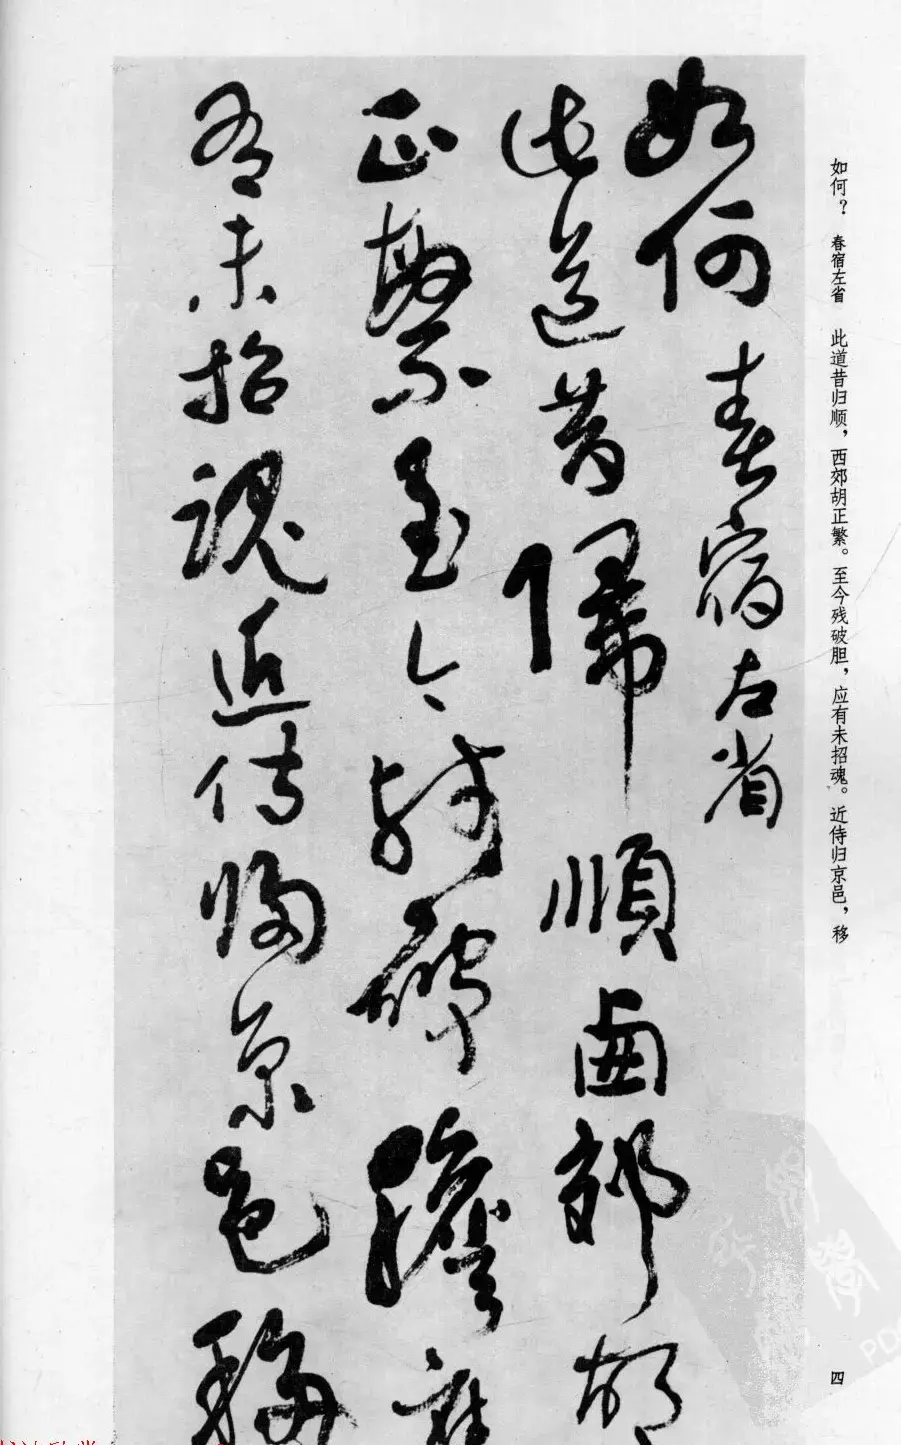 如何春宿左省
此道昔歸順西郊胡
正繁至今殘破膽應
有未招魂近侍歸京邑移
如何？ 春宿左省 此道昔归顺，西郊胡正繁。至今残破胆，应有未招魂。近侍归京邑，移
四